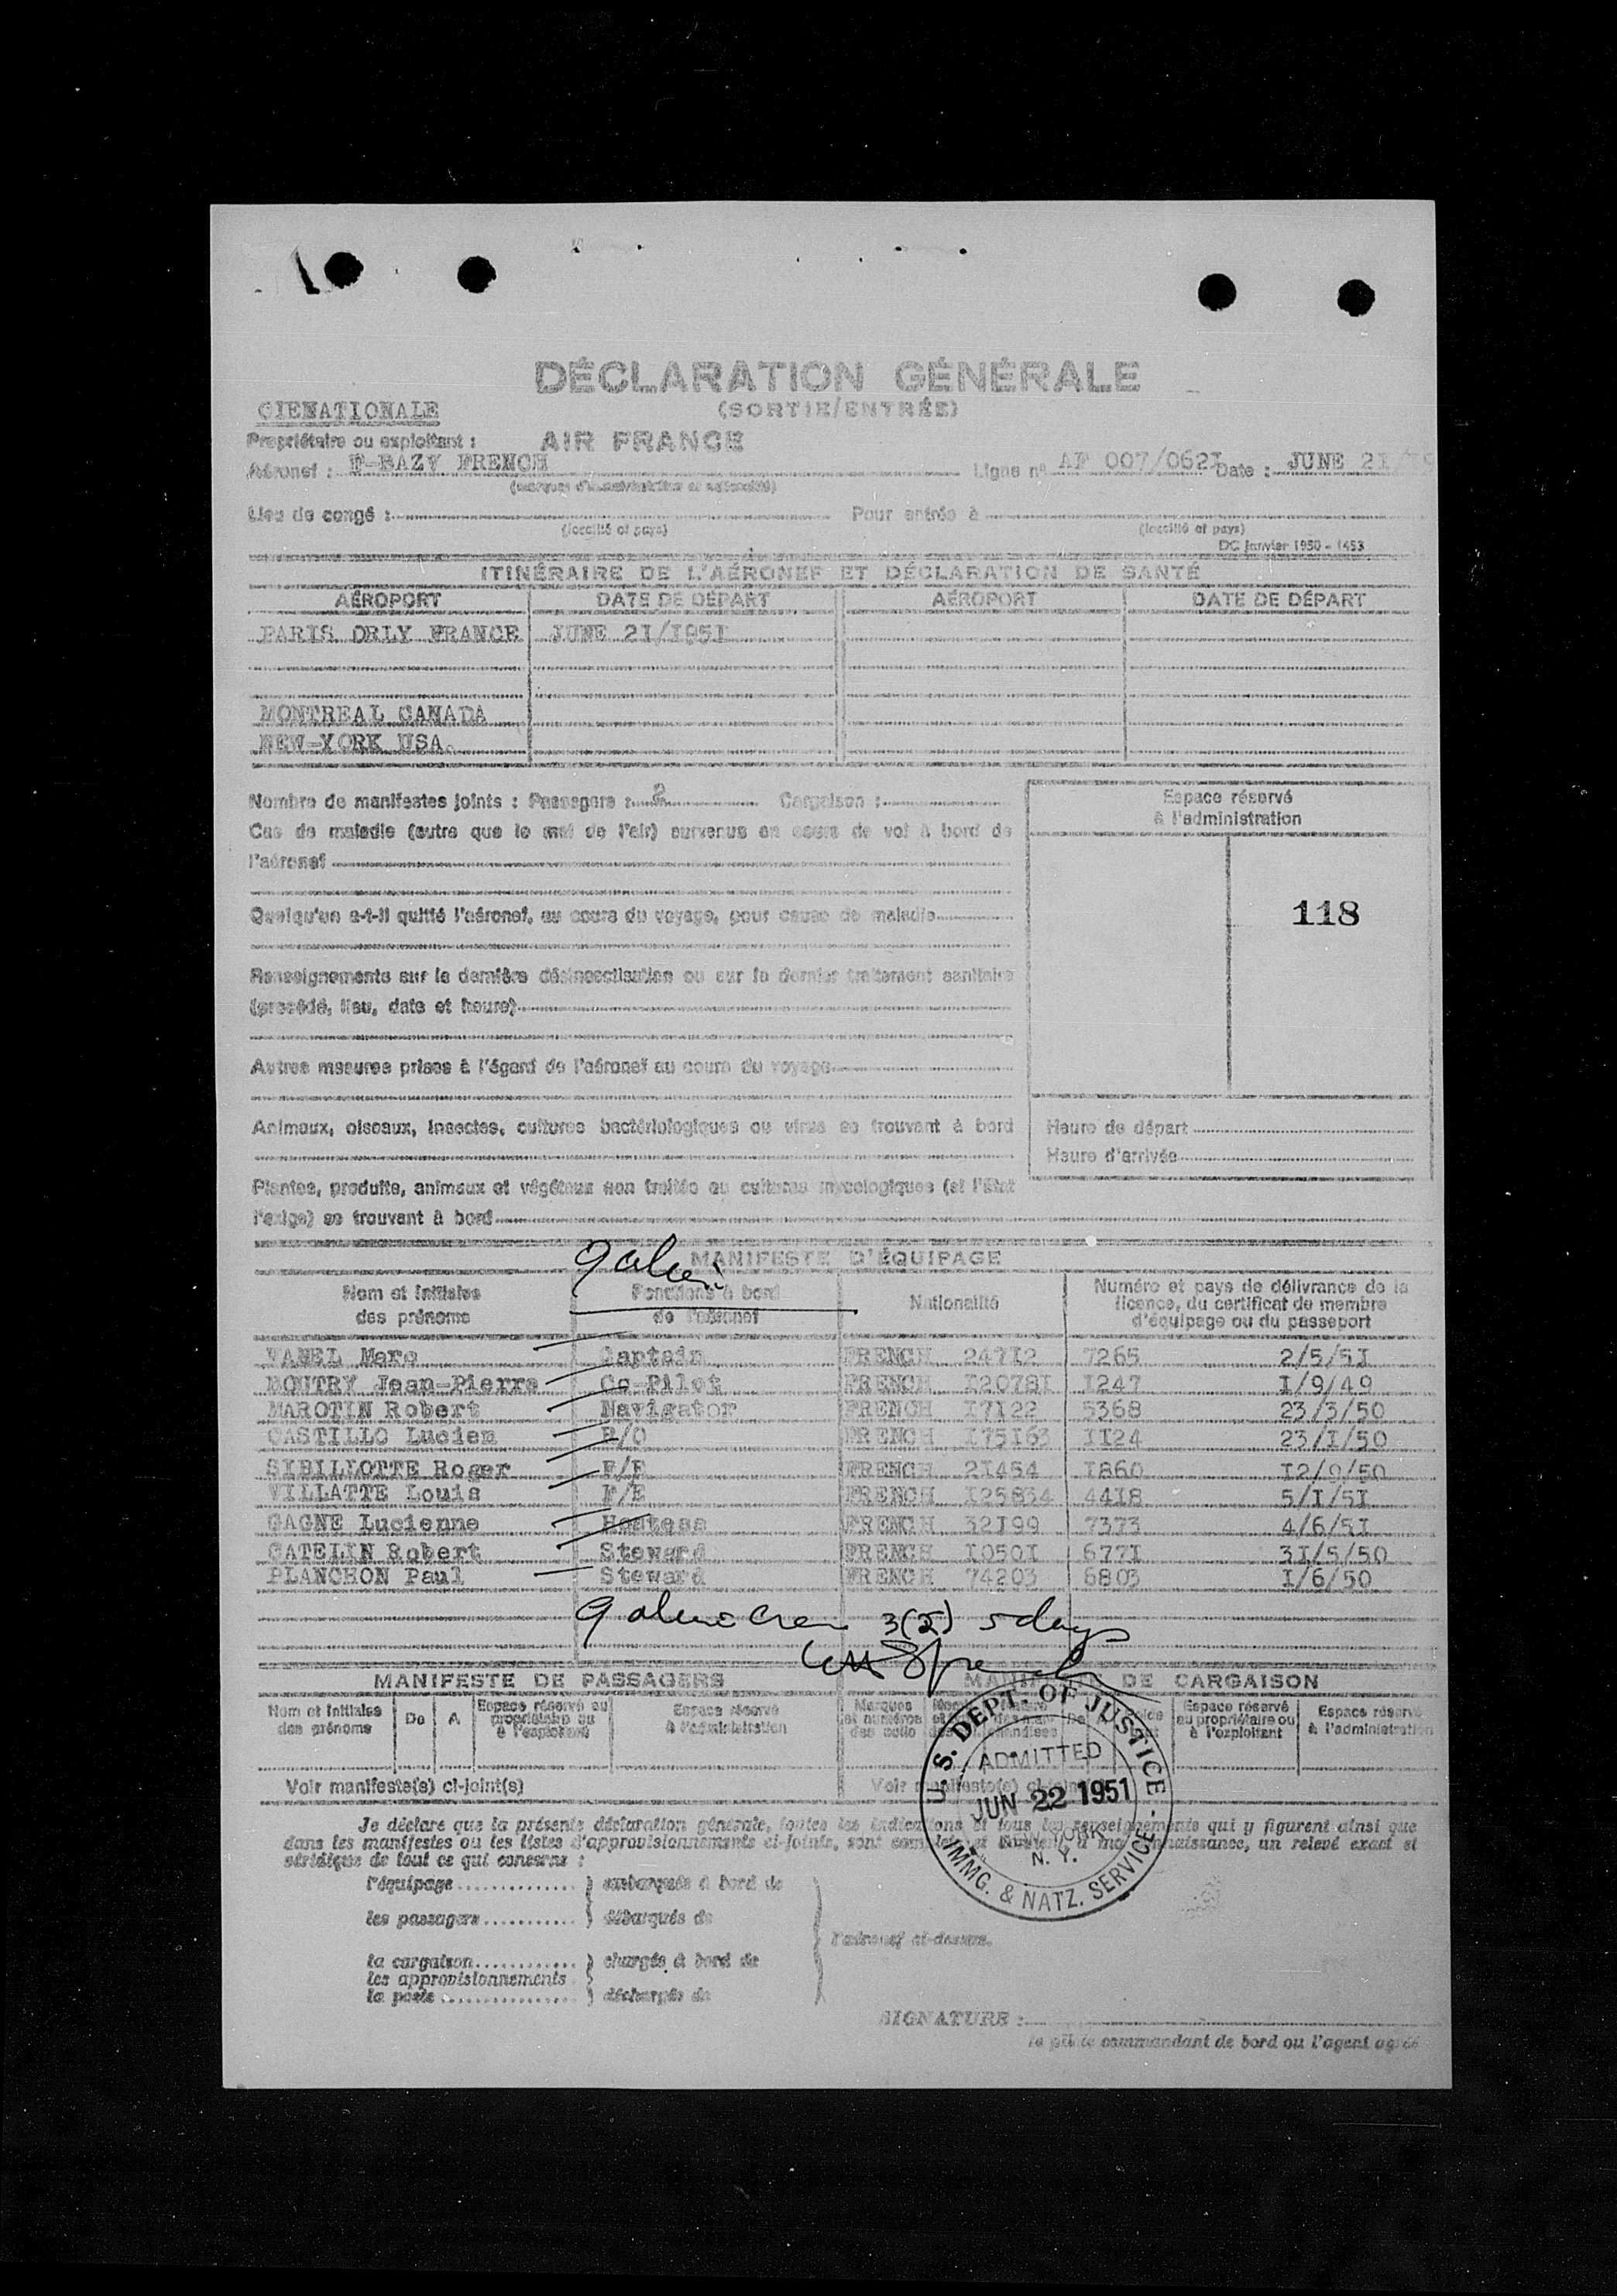 DÉCLARATION GÉNÉRALE
(SORTIE/ENTRÉE)
CIENATIONALE
Propriétaire ou exploitant : AIR FRANCE
Aéronef : F-BAZY FRENCH Ligne nº AF 007/062I Date : JUNE 2I/
(marques d'immatriculation et nationalité)
Lieu de congé : Pour entrée à
(localité et pays) (localité et pays)
DG janvier 1950 - 1453
ITINÉRAIRE DE L'AÉRONEF ET DÉCLARATION DE SANTÉ
AÉROPORT DATE DE DÉPART AÉROPORT DATE DE DÉPART
PARIS ORLY FRANCE JUNE 2I/I95I
MONTREAL CANADA
NEW-YORK USA.
Nombre de manifestes joints : Passagers : 2 Cargaison :
Cas de maladie (autre que le mal de l'air) survenus en cours de vol à bord de
l'aéronef
Quelqu'un a-t-il quitté l'aéronef, au cours du voyage, pour cause de maladie
Renseignements sur la dernière désinsectisation ou sur le dernier traitement sanitaire
(procédé, lieu, date et heure)
Autres mesures prises à l'égard de l'aéronef au cours du voyage
Animaux, oiseaux, insectes, cultures bactériologiques ou virus se trouvant à bord
Plantes, produits, animaux et végétaux non traités ou cultures mycologiques (si l'État
l'exige) se trouvant à bord
Espace réservé
à l'administration
118
Heure de départ
Heure d'arrivée
MANIFESTE D'ÉQUIPAGE
Nom et initiales des prénoms Fonctions à bord de l'aéronef Nationalité Numéro et pays de délivrance de la licence, du certificat de membre d'équipage ou du passeport
VANEL Marc Captain FRENCH 247I2 7265 2/5/5I
MOUTRY Jean-Pierre Co-Pilot FRENCH I2078I I247 I/9/49
MAROTIN Robert Navigator FRENCH I7I22 5368 23/3/50
CASTILLO Lucien R/O FRENCH I75I63 II24 23/I/50
SIBILLOTTE Roger F/E FRENCH 2I454 I860 I2/9/50
VILLATTE Louis F/E FRENCH I25834 44I8 5/I/5I
GAGNE Lucienne Hostess FRENCH 32I99 7373 4/6/5I
GATELIN Robert Steward FRENCH I050I 677I 3I/5/50
PLANCHON Paul Steward FRENCH 74203 6803 I/6/50
9 3(5) 5 days
MANIFESTE DE PASSAGERS MANIFESTE DE CARGAISON
Nom et initiales des prénoms De A Espace réservé au propriétaire ou à l'exploitant Espace réservé à l'administration Marques et numéros des colis De A Espace réservé au propriétaire ou à l'exploitant Espace réservé à l'administration
Voir manifeste(s) ci-joint(s) Voir manifeste(s) ci-joint(s)
U. S. DEPT. OF JUSTICE
ADMITTED
JUN 22 1951
NEW YORK
N. Y.
IMMG. & NATZ. SERVICE
Je déclare que la présente déclaration générale, toutes les indications et tous les renseignements qui y figurent ainsi que
dans les manifestes ou les listes d'approvisionnements ci-joints, sont complets et fournissent à ma connaissance, un relevé exact et
véridique de tout ce qui concerne :
l'équipage embarqués à bord de
les passagers débarqués de
l'aéronef ci-dessus.
la cargaison chargés à bord de
les approvisionnements
la poste déchargés de
SIGNATURE :
le pilote commandant de bord ou l'agent agréé